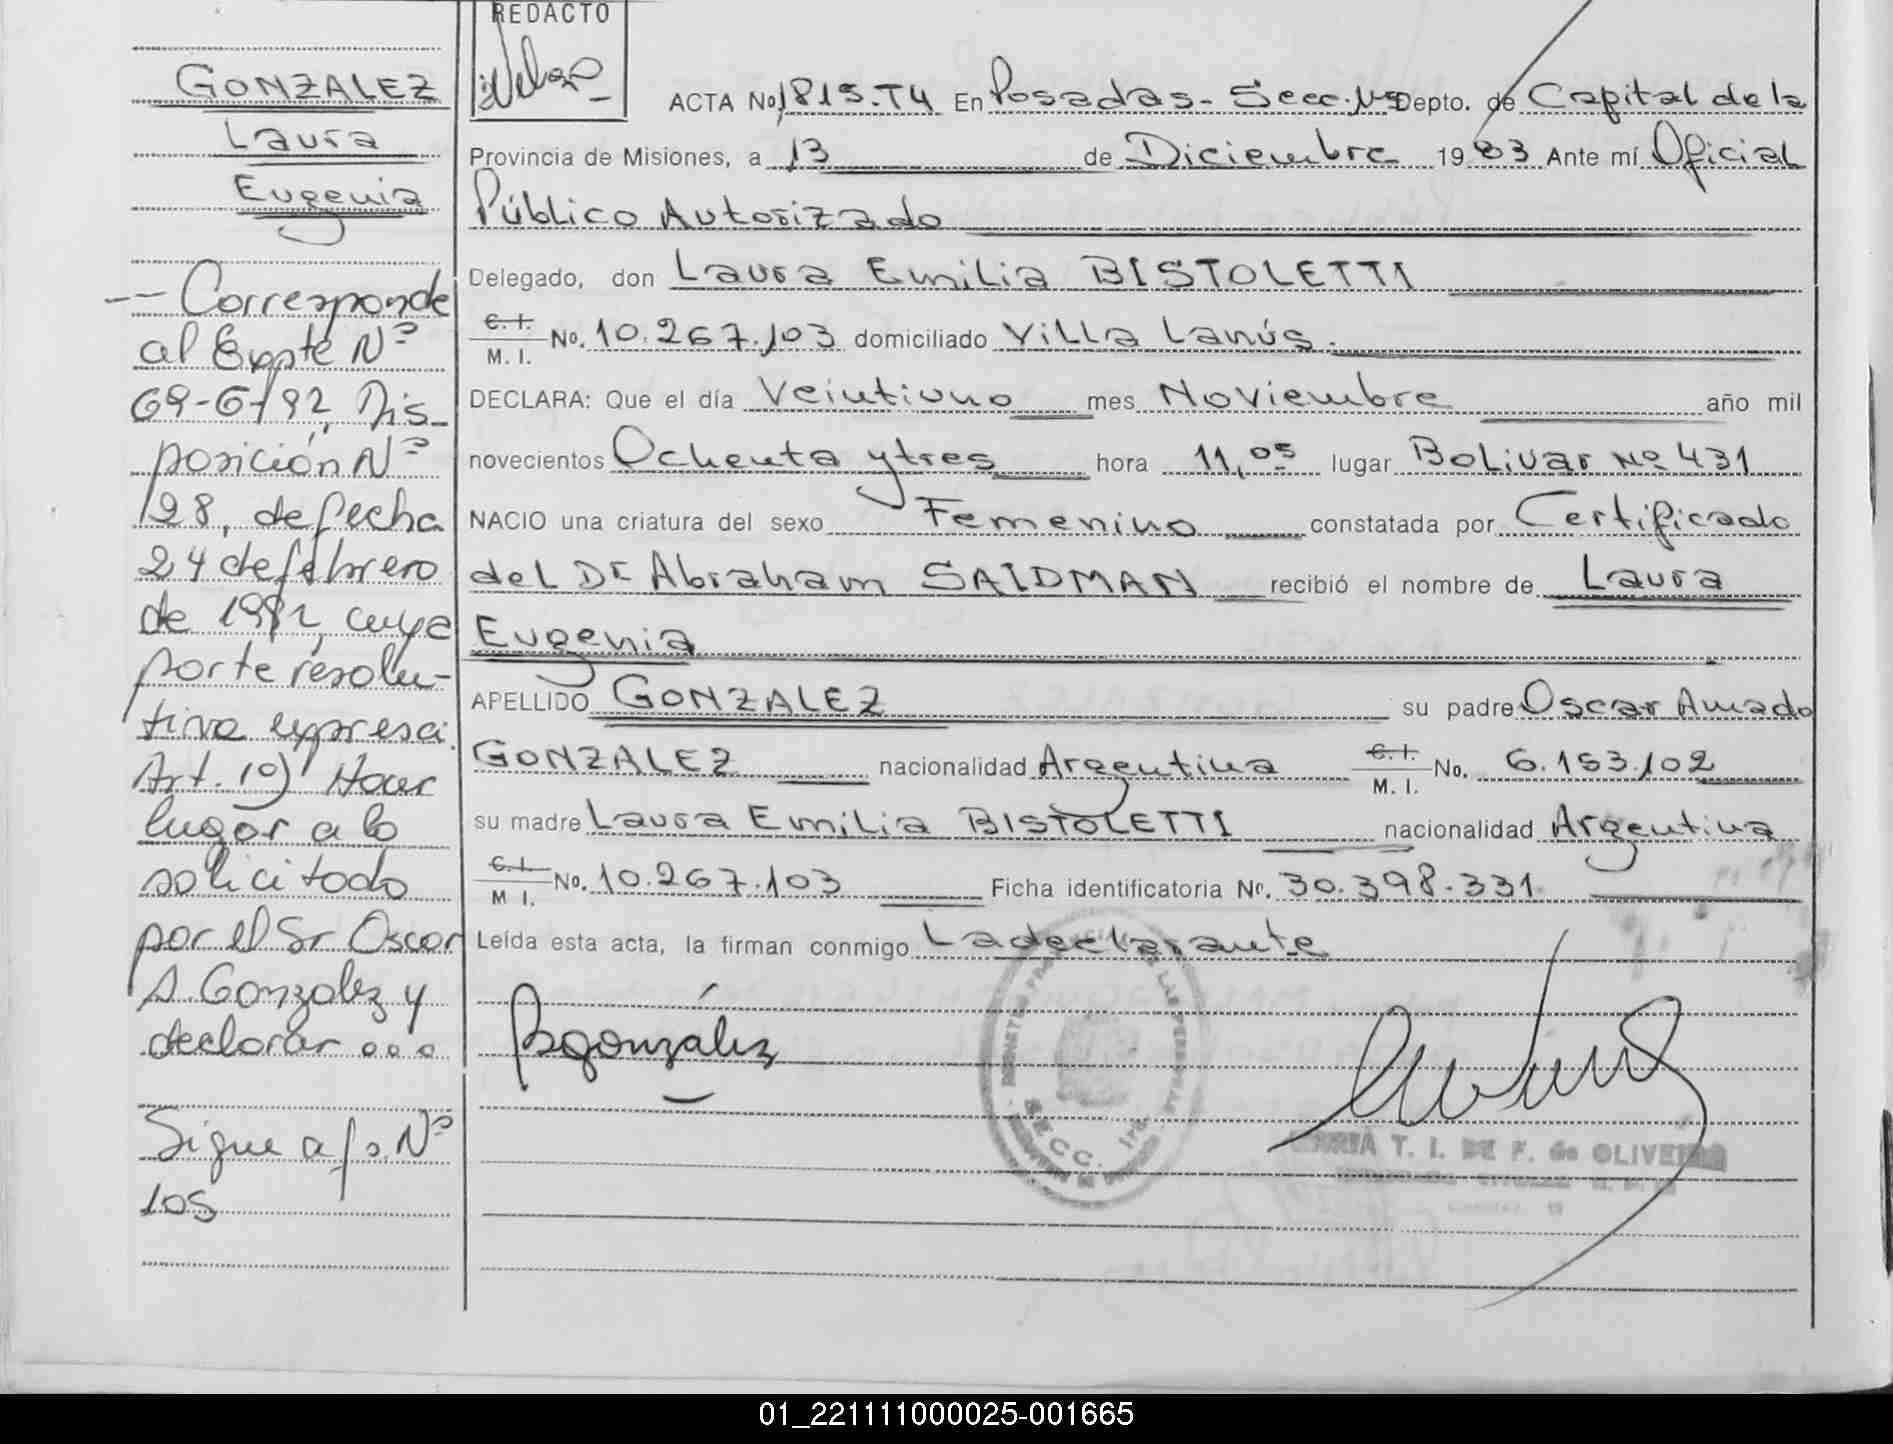 REDACTO
GONZALEZ
Laura
Eugenia
-- Corresponde
al Expte Nº
69-G-92, Dis-
posición Nº
128, de fecha
24 de febrero
de 1992, cuya
parte resolu-
tiva expresa:
Art. 1º) Hacer
lugar a lo
solicitado
por el Sr Oscar
A. Gonzalez y
declarar ...
Sigue a fs. Nº
105
ACTA No 1815.T4 En Posadas - Secc. 1ª Depto. de Capital de la
Provincia de Misiones, a 13 de Diciembre 1983 Ante mí Oficial
Público Autorizado
Delegado, don Laura Emilia BISTOLETTI
C.I. M. I. No. 10.267.103 domiciliado Villa Lanús.
DECLARA: Que el día Veintiuno mes Noviembre año mil
novecientos Ochenta y tres hora 11,05 lugar Bolivar Nº 431
NACIO una criatura del sexo Femenino constatada por Certificado
del Dr Abraham SAIDMAN recibió el nombre de Laura
Eugenia
APELLIDO GONZALEZ su padre Oscar Amado
GONZALEZ nacionalidad Argentina C.I. M. I. No. 6.153.102
su madre Laura Emilia BISTOLETTI nacionalidad Argentina
C.I. M I. No. 10.267.103 Ficha identificatoria No. 30.398.331
Leída esta acta, la firman conmigo La declarante
Bgonzález
SECC. 1ra
MARIA T. I. DE F. de OLIVEIRA
01_221111000025-001665